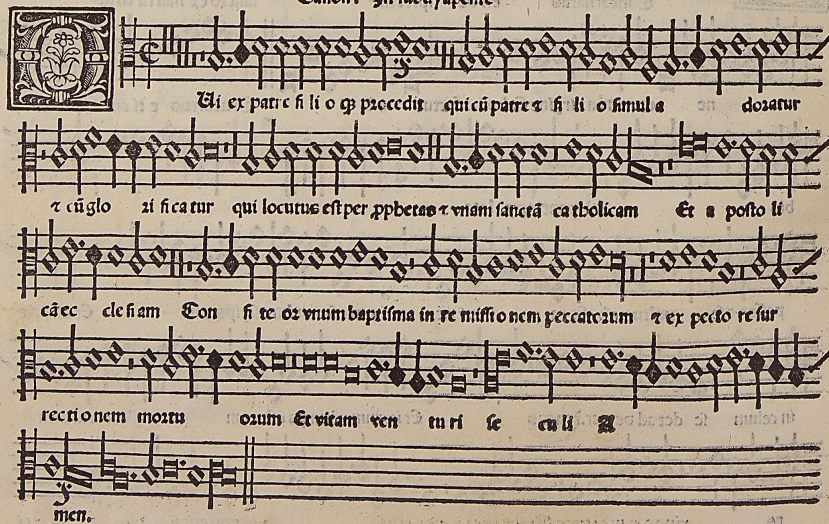 Canon. In subdyapente
Qui ex patre fi li o qȝ procedit qui cũ patre ⁊ fi li o simul a doratur
⁊ cũ glo ri fi ca tur qui locutus est per ꝓphetas ⁊ vnam sanctã ca tholicam Et a posto li
cã ec cle si am Con fi te or vnum baptisma in re missi o nem peccatorum ⁊ ex pecto re sur
recti o nem mortu orum Et vitam ven tu ri se cu li A
men.